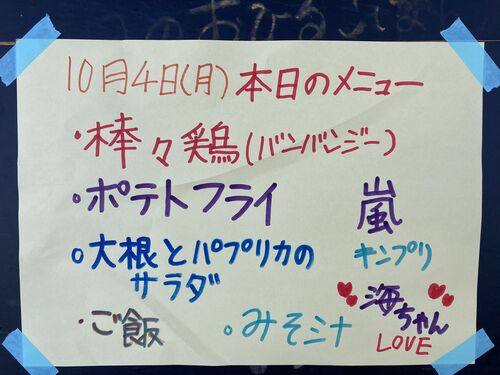 10月4日(月)本日のメニュー
・棒々鶏(バンバンジー)
。ポテトフライ 嵐
。大根とパプリカの キンプリ
サラダ 海ちゃん
・ご飯 。みそ汁 LOVE